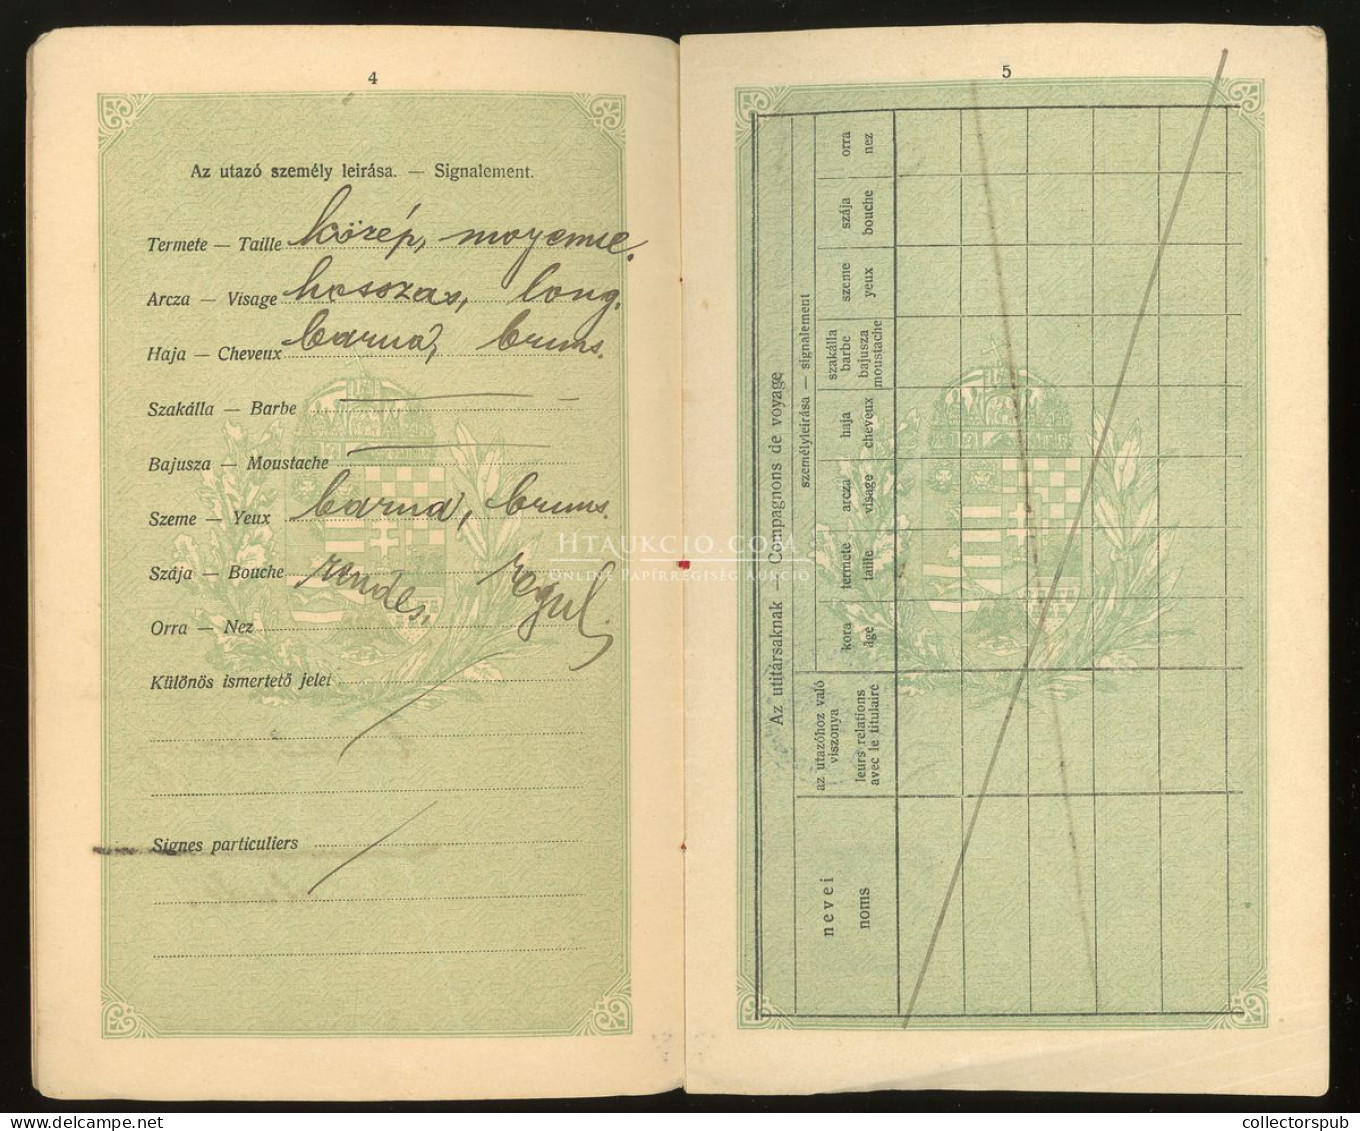 4
Az utazó személy leirása. — Signalement.
Termete — Taille közép, moyenne.
Arcza — Visage hosszas, long.
Haja — Cheveux barna, bruns.
Szakálla — Barbe — –
Bajusza — Moustache —
Szeme — Yeux barna, bruns.
Szája — Bouche rendes, regul.
Orra — Nez
Különös ismertető jelei
Signes particuliers
5
Az utitársaknak — Compagnons de voyage
személyleirása — signalement
nevei
noms
az utazóhoz való
viszonya
leurs relations
avec le titulaire
kora
âge
termete
taille
arcza
visage
haja
cheveux
szakálla
barbe
bajusza
moustache
szeme
yeux
szája
bouche
orra
nez
HTAUKCIO.COM
ONLINE PAPÍRRÉGISÉG AUKCIÓ
collectorspub